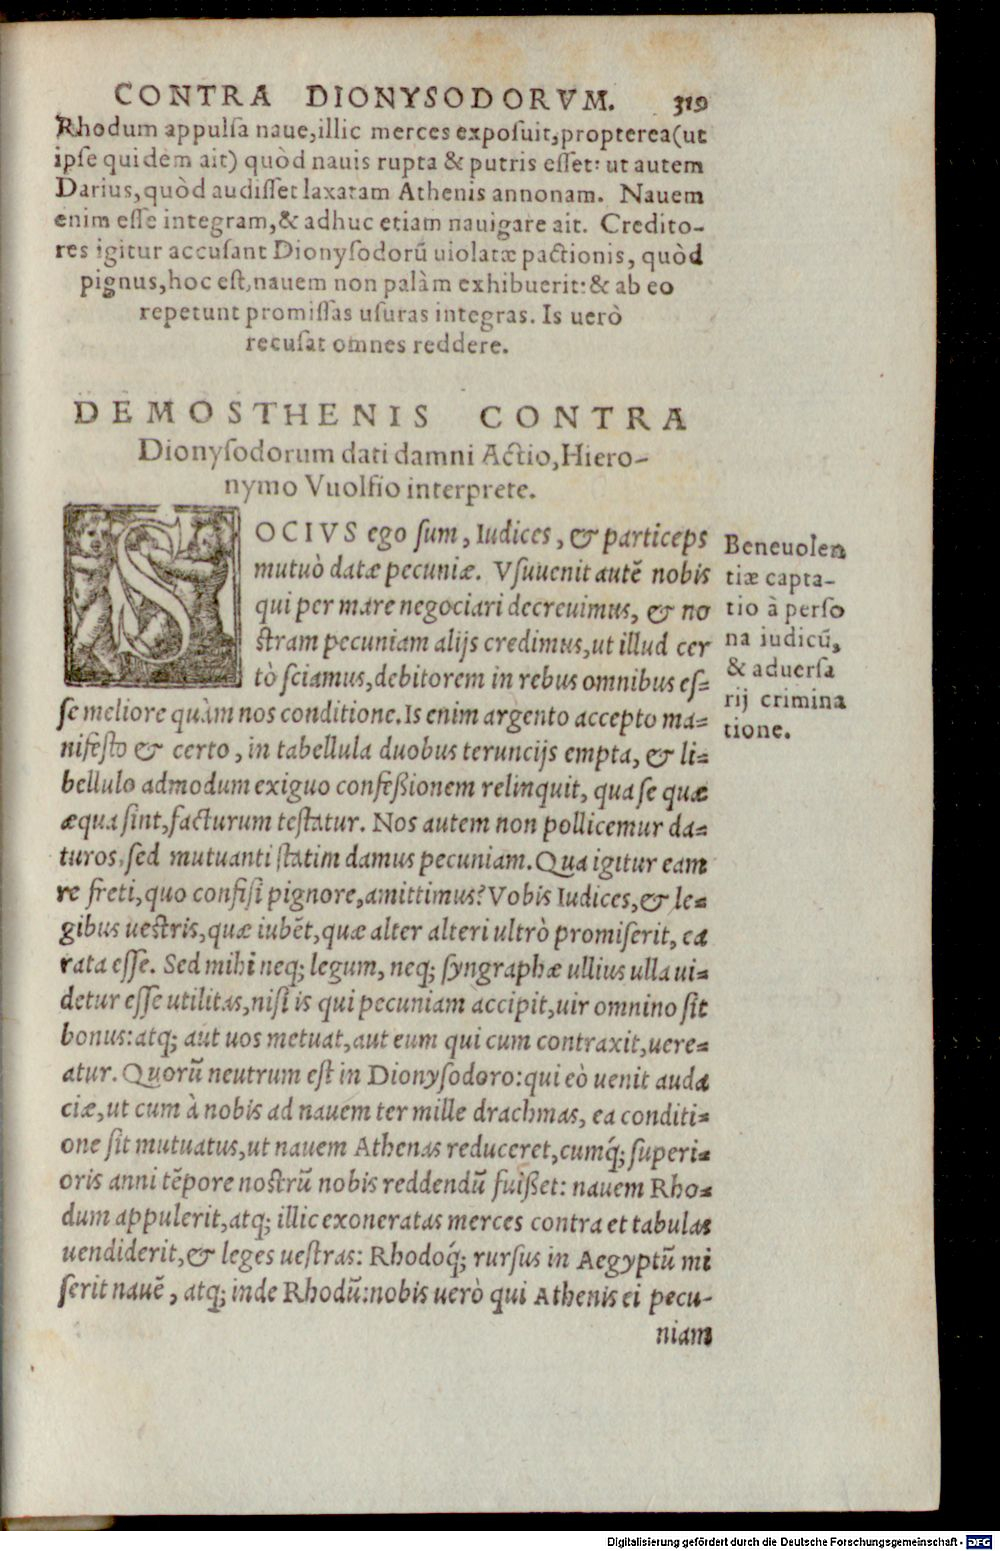 CONTRA DIONYSODORVM. 319
Rhodum appulsa naue, illic merces exposuit, propterea (ut
ipse quidem ait) quòd nauis rupta & putris esset: ut autem
Darius, quòd audisset laxatam Athenis annonam. Nauem
enim esse integram, & adhuc etiam nauigare ait. Credito-
res igitur accusant Dionysodorũ uiolatæ pactionis, quòd
pignus, hoc est, nauem non palàm exhibuerit: & ab eo
repetunt promissas usuras integras. Is uerò
recusat omnes reddere.
DEMOSTHENIS CONTRA
Dionysodorum dati damni Actio, Hiero-
nymo Vuolfio interprete.
SOCIVS ego sum, Iudices, & particeps
mutuò datæ pecuniæ. Vsuuenit autẽ nobis
qui per mare negociari decreuimus, & no
stram pecuniam alijs credimus, ut illud cer
tò sciamus, debitorem in rebus omnibus es=
se meliore quàm nos conditione. Is enim argento accepto ma=
nifesto & certo, in tabellula duobus teruncijs empta, & li=
bellulo admodum exiguo confeßionem relinquit, qua se quæ
æqua sint, facturum testatur. Nos autem non pollicemur da=
turos, sed mutuanti statim damus pecuniam. Qua igitur eam
re freti, quo confisi pignore, amittimus? Vobis Iudices, & le=
gibus uestris, quæ iubẽt, quæ alter alteri ultrò promiserit, ea
rata esse. Sed mihi neq; legum, neq; syngraphæ ullius ulla ui=
detur esse utilitas, nisi is qui pecuniam accipit, uir omnino sit
bonus: atq; aut uos metuat, aut eum qui cum contraxit, uere=
atur. Quorũ neutrum est in Dionysodoro: qui eò uenit auda
ciæ, ut cum à nobis ad nauem ter mille drachmas, ea conditi=
one sit mutuatus, ut nauem Athenas reduceret, cumq́; superi=
oris anni tẽpore nostrũ nobis reddendũ fuißet: nauem Rho=
dum appulerit, atq; illic exoneratas merces contra et tabulas
uendiderit, & leges uestras: Rhodoq́; rursus in Aegyptũ mi
serit nauẽ, atq; inde Rhodũ: nobis uerò qui Athenis ei pecu-
niam
Beneuolen
tiæ capta-
tio à perso
na iudicũ,
& aduersa
rij crimina
tione.
Digitalisierung gefördert durch die Deutsche Forschungsgemeinschaft - DFG